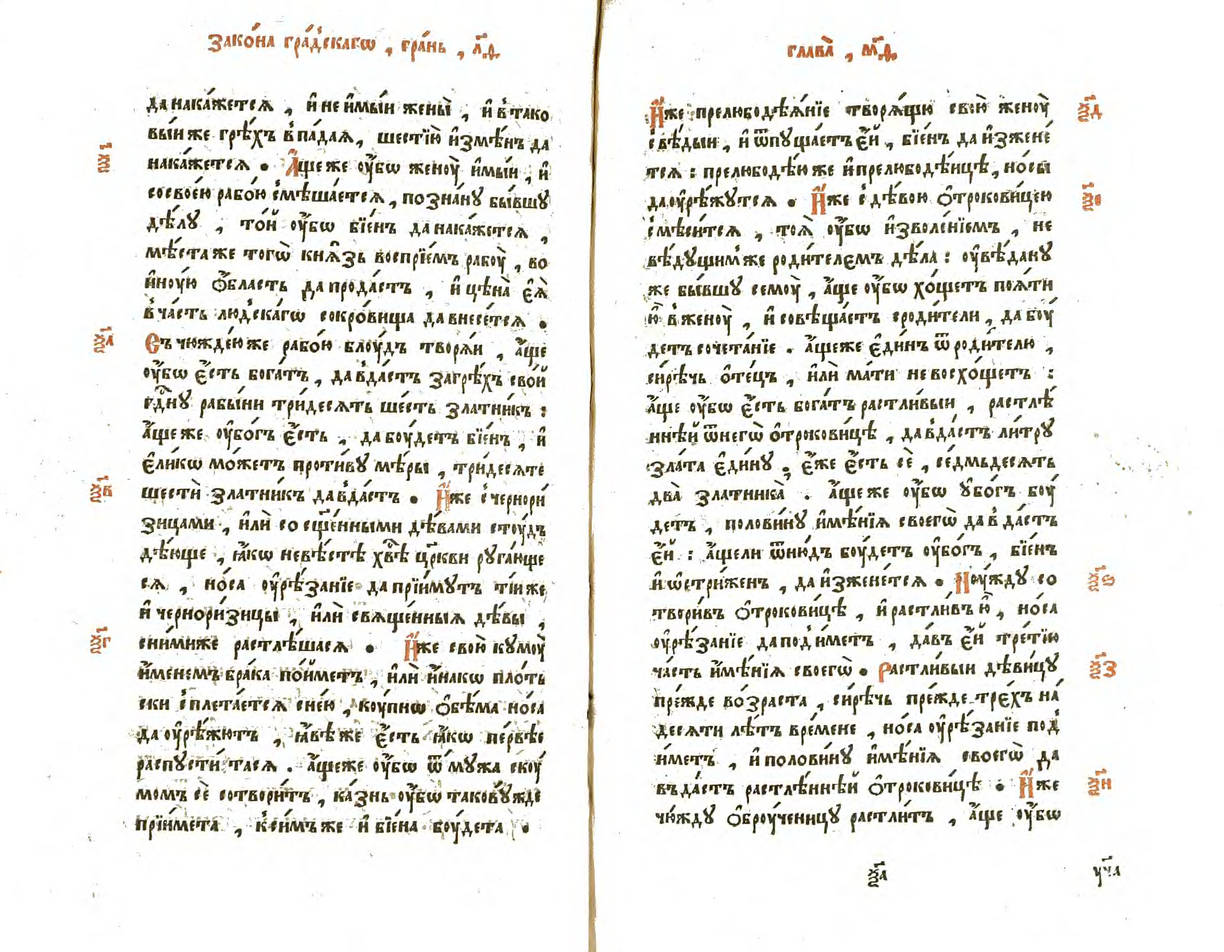 Зако́на гра́дскагѡ , гра́нь , л҃ѳ .
да нака́жетсѧ , и҆ не и҆мы́и жены̀ , и҆ в̾ тако
вы́и же грѣ́хъ в̾ па́даѧ , шестїю и҆змѣ́нъ да
нака́жетсѧ . А҆́ще же ᲂу҆́бѡ женоу̀ и҆мы́и , и҆
со свое́ю рабо́ю смѣ́шаетсѧ , по зна́нꙋ бы́вшꙋ
дѣ́лꙋ , то́и ᲂу҆́бѡ бїе́нъ да нака́жетсѧ ,
мѣ́ста же тогѡ̀ кнѧ́зь воспрїе́мъ рабоу̀ , во
и҆ноую ѻ҆́бласть да прода́стъ , и҆ цѣна̀ є҆ѧ̀
в̾ ча́сть люд́скагѡ сокро́вища да внесе́тсѧ .
Съ чюжде́ю же рабо́ю блоу́дъ творѧ́и , а҆́ще
ᲂу҆́бѡ є҆́сть бога́тъ , да в̾да́стъ за грѣ́хъ свои́
г҃днꙋ рабы́ни три́десѧть ше́сть зла́тникъ :
а҆́ще же ᲂу҆бо́гъ є҆́сть , да боу́детъ бїе́нъ , и҆
є҆ли́кѡ мо́жетъ проти́вꙋ мѣ́ры , три́десѧте
шести́ зла́тникъ да в̾да́стъ . И҆́же с̾ чернори́
зицами , и҆лѝ со сщ҃е́нными дѣ́вами стоу́дъ
дѣ́юще , ꙗ҆́кѡ невѣ́стѣ хв҃ѣ цр҃кви рꙋга́юще
сѧ , но́са ᲂу҆рѣ́занїе да прїи́мꙋтъ ті́и же ,
и҆ чернори́зицы , и҆лѝ свѧще́нныѧ дѣ́вы ,
сни́миже растлѣ́шасѧ . И҆́же свою̀ кꙋмоу̀
и҆́менемъ бра́ка по́иметъ , и҆лѝ и҆на́кѡ пло́ть
ски с̾плета́етсѧ с не́ю , коу́пнѡ ѻ҆бѣ́ма но́са
да ᲂу҆рѣ́жютъ , ꙗ҆́вѣ же є҆́сть ꙗ҆́кѡ пе́рвѣе
распꙋсти́ тасѧ . а҆́ще же ᲂу҆́бѡ ѿ мꙋ́жа скоу́
момъ сѐ сотвори́тъ , ка́знь ᲂу҆́бѡ таковꙋ́ жде
прїи́мета , к си́мъ же и҆ бїе́на боу́дета .
҂хл҃
҂ха҃
҂хв҃
҂хг҃
глава̀ , м҃ѳ .
И҆́же прелюбодѣѧ́нїе творѧ́щю свою̀ женоу̀
свѣ́дыи , и҆ ѿпꙋща́етъ є҆́и , бїе́нъ да и҆зжене́
тсѧ : прелюбодѣ́ю же и҆ прелюбодѣ́ицѣ , но́сы
да ᲂу҆рѣ́жꙋтсѧ . И҆́же с̾ дѣ́вою ѻ҆трокови́цею
смѣси́тсѧ , тоѧ̀ ᲂу҆́бѡ и҆зволе́нїемъ , не
вѣ́дꙋщим̾ же роди́телемъ дѣ́ла : ᲂу҆вѣ́данꙋ
же бы́вшꙋ семоу̀ , а҆́ще ᲂу҆́бѡ хо́щетъ поѧ́ти
ю҆̀ в̾ женоу̀ , и҆ совѣща́етъ с роди́тели , да боу́
детъ сочета́нїе . а҆́ще же є҆ди́нъ ѿ роди́телю ,
си́рѣчь ѻ҆те́цъ , и҆лѝ ма́ти не восхо́щетъ :
а҆́ще ᲂу҆́бѡ є҆́сть бога́тъ растли́выи , растлѣ́
ннѣ́и ѿ негѡ̀ ѻ҆трокови́цѣ , да в̾да́стъ ли́трꙋ
зла́та є҆ди́нꙋ , є҆́же є҆́сть сѐ , се́дмьдесѧтъ
два̀ зла́тника . а҆́ще же ᲂу҆́бѡ ᲂу҆бо́гъ боу́
детъ , полови́нꙋ и҆мѣ́нїѧ своегѡ̀ да в̾ да́стъ
є҆́и : а҆́ще ли ѿню́дъ боу́детъ ᲂу҆бо́гъ , бїе́нъ
и҆ ѡ҆стри́женъ , да и҆зжене́тсѧ . Ноу́ждꙋ со
твори́въ ѻ҆трокови́цѣ , и҆ растли́въ ю҆̀ , но́са
ᲂу҆рѣ́занїе да под̾и́метъ , да́въ є҆́и тре́тїю
ча́сть и҆мѣ́нїѧ своегѡ̀ . Растли́выи дѣви́цꙋ
пре́жде во́зраста , си́рѣчь пре́жде тре́хъ на́
десѧти лѣ́тъ вре́мене , но́са ᲂу҆рѣ́занїе под̾
и́метъ , и҆ полови́нꙋ и҆мѣ́нїѧ своегѡ̀ да
въда́стъ растлѣ́ннѣ́и ѻ҆трокови́цѣ . И҆́же
чю́ждꙋ ѻ҆брꙋ́ченицꙋ растли́тъ , а҆́ще ᲂу҆́бѡ